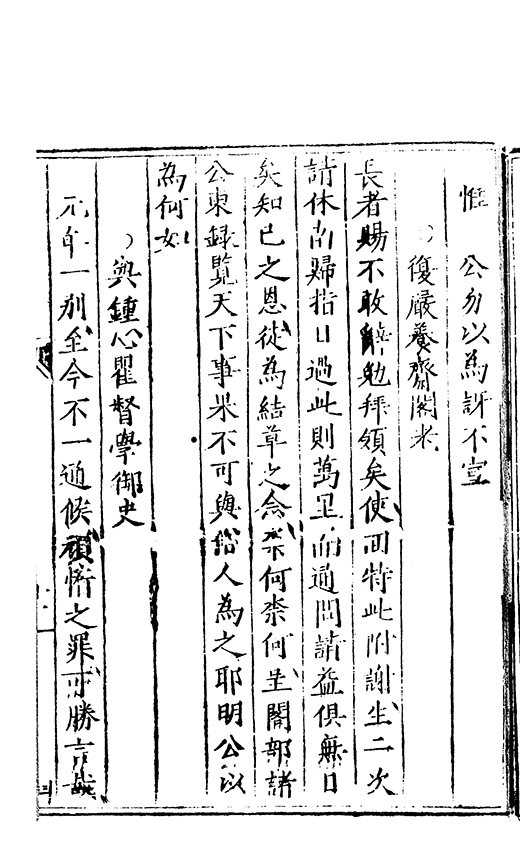 惟　公勿以為訝不宣
復嚴養齋閣老
長者賜不敢辭勉拜領矣使回特此附謝生二次
請休南歸指日過此則萬里而通問請益俱無日
矣知已之恩徒為結草之念柰何柰何生閣部諸
公東録覧天下事果不可與俗人為之耶明公以
為何如
與鍾心瞿督學御史
元年一別至今不一通候懶惰之罪可勝言哉